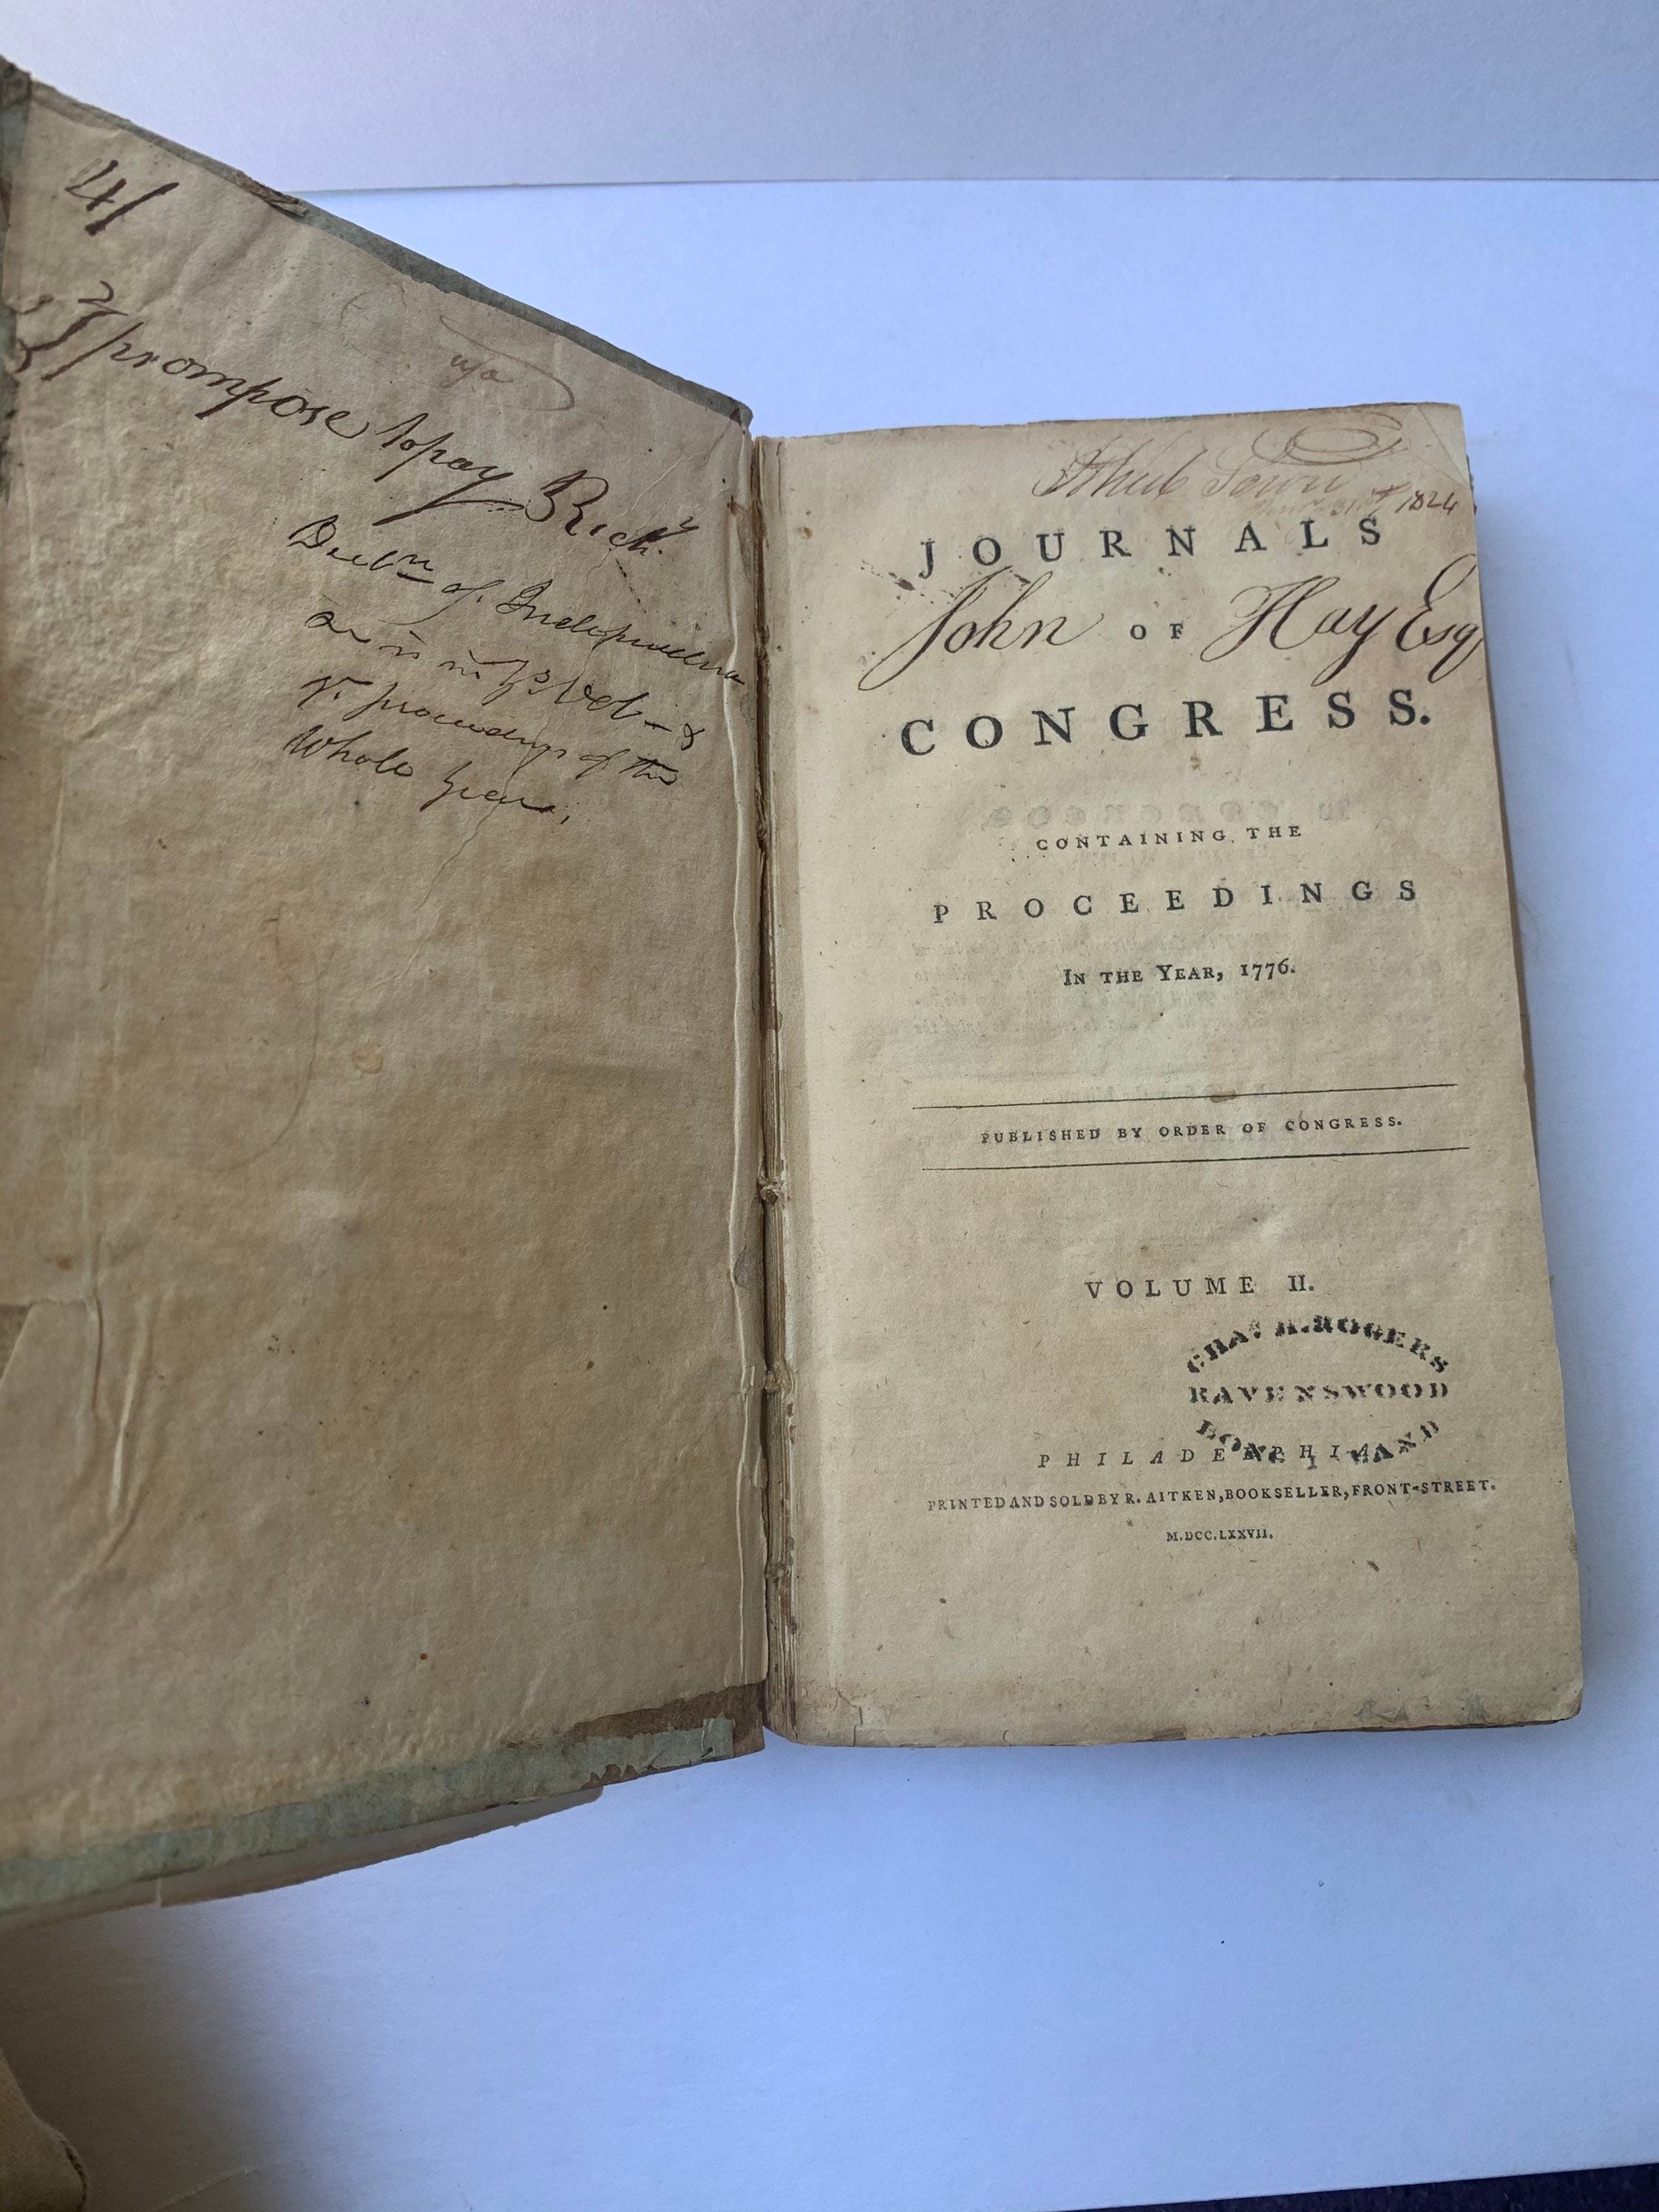 4/
I prompose to pay Rich.d
Decl.n of Independence
as in in this Vol — &
ye proceedings of the
Whole year,
Ithiel Town
31st 1824
JOURNALS
John OF Hay Esq
CONGRESS.
CONTAINING THE
PROCEEDINGS
IN THE YEAR, 1776.
PUBLISHED BY ORDER OF CONGRESS.
VOLUME II.
CHAs. H. ROGERS
RAVENSWOOD
LONG ISLAND
PHILADELPHIA
PRINTED AND SOLD BY R. AITKEN, BOOKSELLER, FRONT-STREET.
M.DCC.LXXVII.